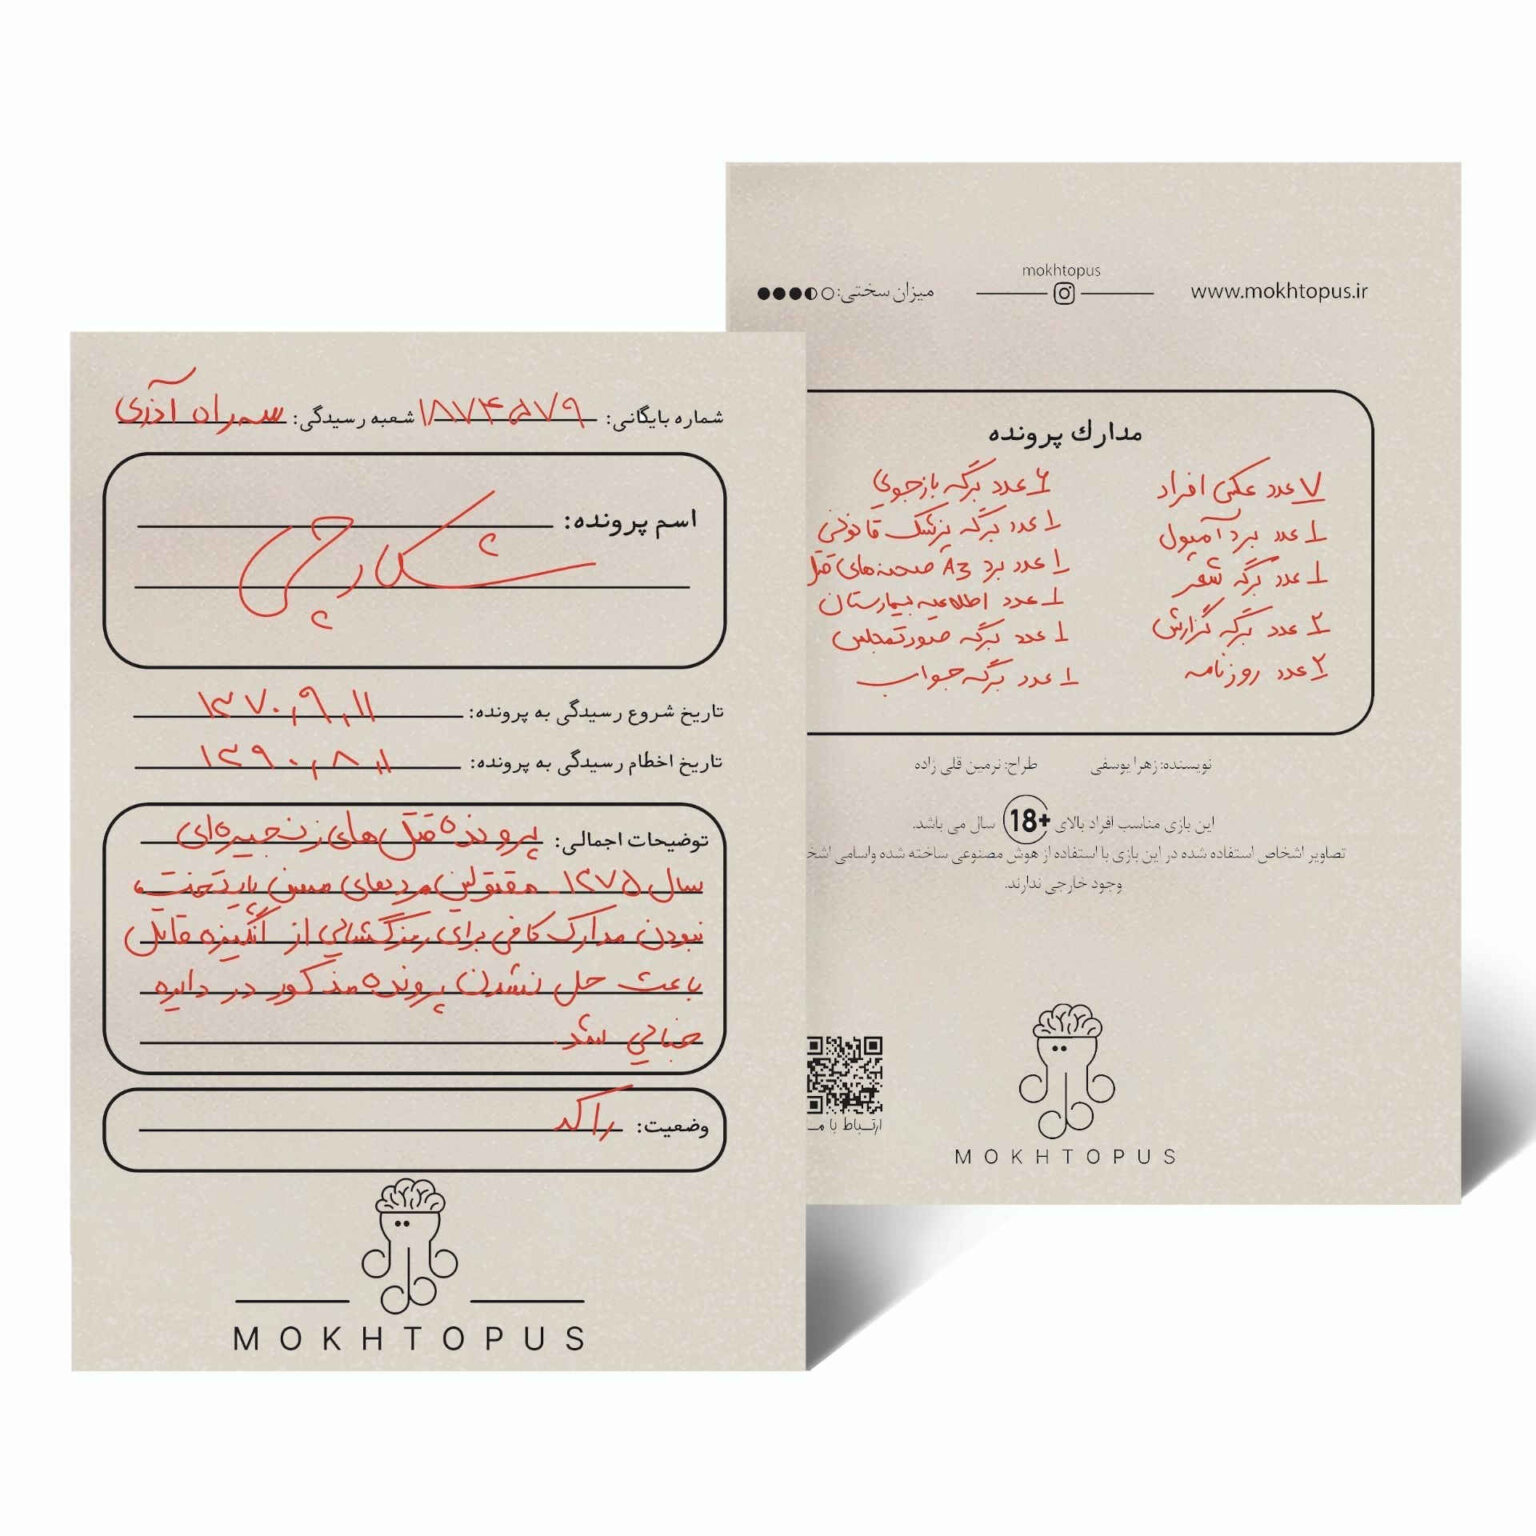 شماره بایگانی: ۱۸۷۴۵۷۹ شعبه رسیدگی: سه‌راه آذری
اسم پرونده:
شکارچی
تاریخ شروع رسیدگی به پرونده: ۱۳۷۰,۹,۱۱
تاریخ اخطام رسیدگی به پرونده: ۱۳۹۰,۸,۱۱
توضیحات اجمالی: پرونده قتل های زنجیره‌ای
سال ۱۳۷۵. مقتولین مردهای مسن پایتخت،
نبودن مدارک کافی برای رمزگشایی از انگیزه قاتل
باعث حل نشدن پرونده مذکور در دایره
جنایی شد.
وضعیت: راکد
MOKHTOPUS
میزان سختی:
mokhtopus
www.mokhtopus.ir
مدارك پرونده
۷ عدد عکس افراد
۱ عدد برد آمپول
۱ عدد برگه شعر
۲ عدد برگه گزارش
۲ عدد روزنامه
۶ عدد برگه بازجویی
۱ عدد برگه پزشک قانونی
۱ عدد برد A3 صحنه‌های قتل
۱ عدد اطلاعیه بیمارستان
۱ عدد برگه صورتمجلس
۱ عدد برگه جواب
نویسنده: زهرا یوسفی طراح: نرمین قلی زاده
این بازی مناسب افراد بالای 18+ سال می باشد.
تصاویر اشخاص استفاده شده در این بازی با استفاده از هوش مصنوعی ساخته شده واسامی
وجود خارجی ندارند.
ارتباط با مـ
MOKHTOPUS